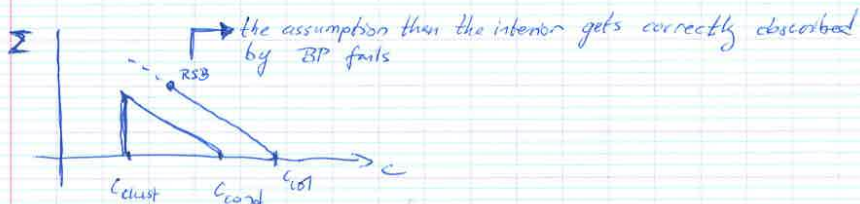 Σ
the assumption than the interior gets correctly described
by BP fails
RSB
C
Cclust
Ccond
Ccol